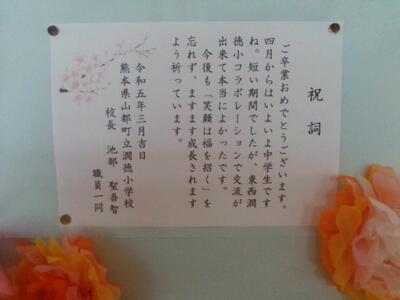 祝詞
ご卒業おめでとうございます。
四月からはいよいよ中学生です
ね。短い期間でしたが、東西潤
徳小コラボレーションで交流が
出来て本当によかったです。
今後も「笑顔は福を招く」を
忘れず、ますます成長されます
よう祈っています。
令和五年三月吉日
熊本県山都町立潤徳小学校
校長 池部 聖吾智
職員一同